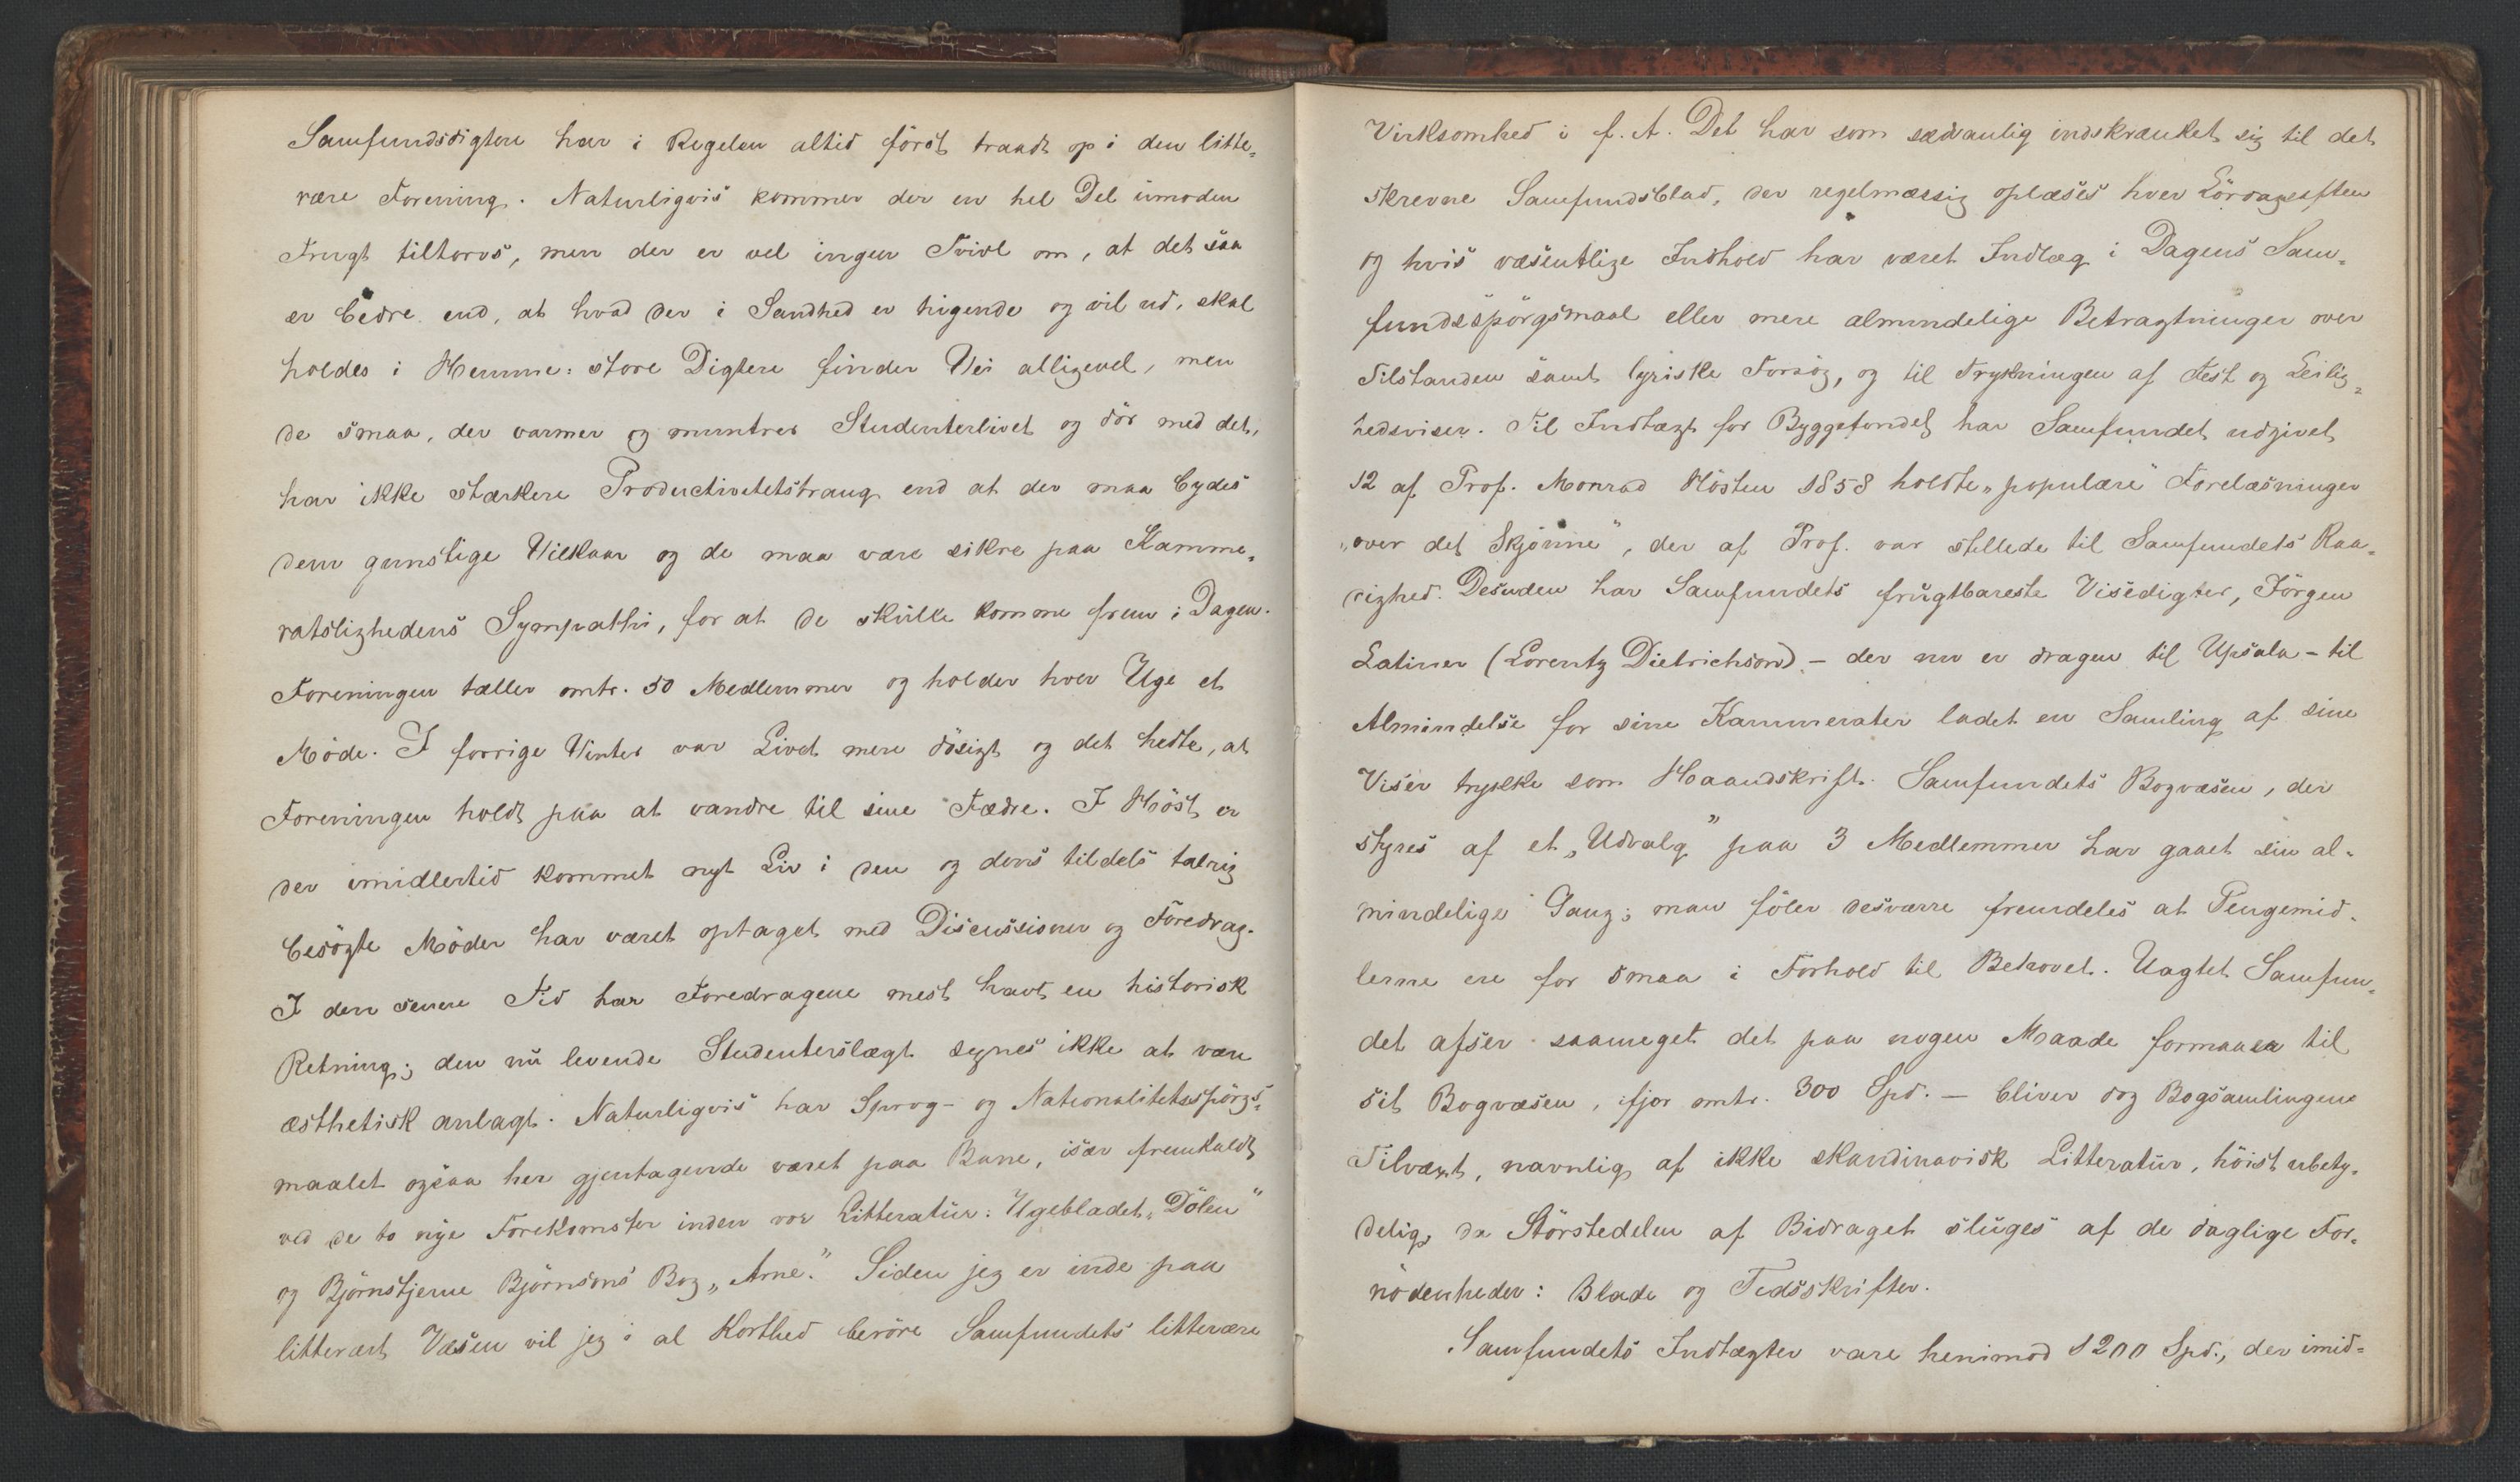 Samfundsdigtere har i Regelen altid först traadt op i den litte,
rære Forening. Naturligvis kommer der en hel Del umoden
Frugt tiltorvs, men der er vel ingen Tvivl om, at det saa
er bedre end, at hvad der i Sandhed er higende og vil ud, skal
holdes i Hemme: store Digtere finder Vei alligevel, men
de smaa, der varmer og muntrer Studenterlivet og dör med det,
har ikke stærkere Productivitetstrang end at der maa bydes
dem gunstige Vilkaar og de maa være sikre paa Kamme,
ratslighedens Sympathi, for at de skulle komme frem i Dagen.
Foreningen tæller omtr. 50 Medlemmer og holder hver Uge et
Möde. I forrige Vinter var Livet mere dösigt og det hedte, at
Foreningen holdt paa at vandre til sine Fædre. I Höst er
der imidlertid kommet nyt Liv i den og dens tildels talrig
besögte Möder har været optaget med Discussioner og Foredrag.
I den senere Tid har Foredragene mest havt en historisk
Retning; den nu levende Studenterslægt synes ikke at være
æsthetisk anlagt. Naturligvis har Sprog- og Nationalitetsspörgs,
maalet ogsaa her gjentagende været paa Bane, især fremkaldt
ved de to nye Forekomster inden vor Litteratur: Ugebladet „Dölen"
og Björnstjerne Björnsons Bog „Arne." Siden jeg er inde paa
litterært Væsen vil jeg i al Korthed beröre Samfundets litterære
Virksomhed i f. A. Det har som sædvanlig indskrænket sig til det
skrevne Samfundsblad, der regelmæssig oplæses hver Lördagsaften
og hvis væsentlige Indhold har været Indlæg i Dagens Sam,
fundsspörgsmaal eller mere almindelige Betragtninger over
Tilstanden samt lyriske Forsög, og til Trykningen af Fest og Leilig,
hedsviser. Til Indtægt for Byggefondet har Samfundet udgivet
12 af Prof. Monrad Hösten 1858 holdte „populære Forelæsninger
„over det Skjönne", der af Prof. var stillede til Samfundets Raa,
dighed. Desuden har Samfundets frugtbareste Visedigter, Jörgen
Latiner (Lorentz Dietrichson) - der nu er dragen til Upsala - til
Almindelse for sine Kammerater ladet en Samling af sine
Viser trykke som Haandskrift. Samfundets Bogvæsen, der
styres af et „Udvalg" paa 3 Medlemmer har gaaet sin al-
mindelige Gang; man föler desværre fremdeles at Pengemid-
lerne ere for smaa i Forhold til Behovet. Uagtet Samfun,
det afser saameget det paa nogen Maade formaaer til
sit Bogvæsen, ifjor omtr. 300 Spd. — bliver dog Bogsamlingens
Tilvæxt, navnlig af ikke skandinavisk Litteratur, höist ubety,
delig, da Störstedelen af Bidraget sluges af de daglige For,
nödenheder: Blade og Tidsskrifter.
Samfundets Indtægter vare henimod 1200 Spd., der imid=